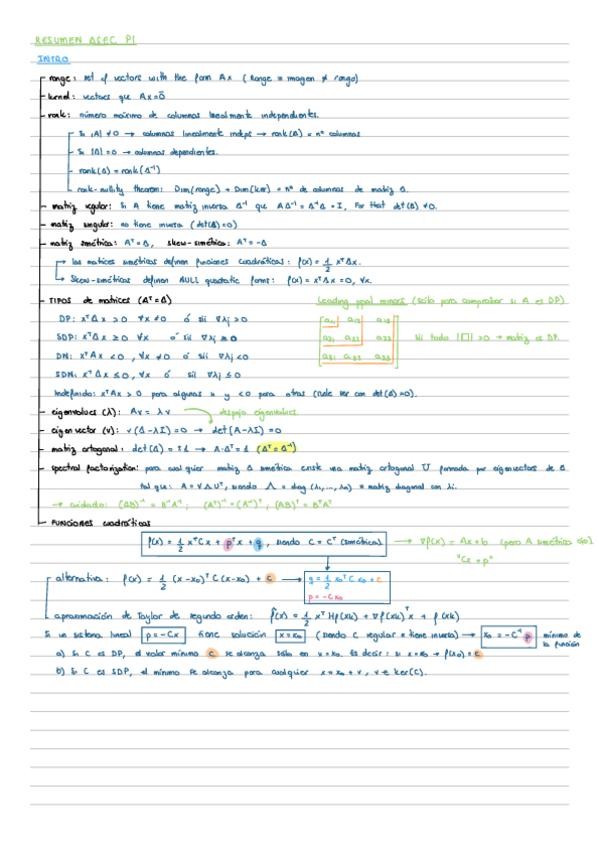 RESUMEN ASEC P1
INTRO
- range: set of vectors with the form Ax (Range = imagen ≠ rango)
- kernel: vectores que Ax=0̄
- rank: número máximo de columnas linealmente independientes.
- Si |A| ≠ 0 → columnas linealmente indeps → rank(A) = nº columnas
- Si |A| = 0 → columnas dependientes.
- rank(A) = rank(A⁻¹)
- rank-nullity theorem: Dim(range) + Dim(ker) = nº de columnas de matriz A.
- matriz regular: Si A tiene matriz inversa A⁻¹ que AA⁻¹ = A⁻¹A = I, For that det(A) ≠ 0.
- matriz singular: no tiene inversa (det(A)=0)
- matriz simétrica: Aᵀ = A, skew-simétrica: Aᵀ = -A
→ las matrices simétricas definen funciones cuadráticas: f(x) = 1/2 xᵀAx.
→ Skew-simétricas definen NULL quadratic forms: f(x) = xᵀAx = 0, ∀x.
- TIPOS de matrices (Aᵀ=A) Leading ppal minors (sólo para comprobar si A es DP)
DP: xᵀAx > 0 ∀x ≠ 0 ó sii ∀λj > 0
SDP: xᵀAx ≥ 0 ∀x ó sii ∀λj ≥ 0
DN: xᵀAx < 0, ∀x ≠ 0 ó sii ∀λj < 0
SDN: xᵀAx ≤ 0, ∀x ó sii ∀λj ≤ 0
a₁₁ a₁₂ a₁₃
a₂₁ a₂₂ a₂₃ sii todo |□| > 0 → matriz es DP.
a₃₁ a₃₂ a₃₃
Indefinido: xᵀAx > 0 para algunos x y < 0 para otras (suele ser con det(A)=0).
- eigenvalues (λ): Av = λv despeja eigenvalues
- eigenvector (v): v(A-λI) = 0 → det(A-λI) = 0
- matriz ortogonal: det(A) = ±1 → A·Aᵀ = 1 (Aᵀ = A⁻¹)
- spectral factorization: para cualquier matriz A simétrica existe una matriz ortogonal U formada por eigenvectors de A
tal que: A = UΛUᵀ, siendo Λ = diag (λ₁,..., λn) = matriz diagonal con λi.
→ cuidado: (AB)⁻¹ = B⁻¹A⁻¹, (Aᵀ)⁻¹ = (A⁻¹)ᵀ, (AB)ᵀ = BᵀAᵀ
- FUNCIONES cuadráticas
f(x) = 1/2 xᵀCx + pᵀx + q, siendo C = Cᵀ (simétrica) → ∇f(x) = Ax+b (para A simétrica sólo)
"Cx + p"
- alternativa: f(x) = 1/2 (x-x₀)ᵀ C (x-x₀) + c → q = 1/2 x₀ᵀ C x₀ + c
p = -Cx₀
- aproximación de Taylor de segundo orden: f̂(x) = 1/2 xᵀ Hf(xk) + ∇f(xk)ᵀ x + f(xk)
Si un sistema lineal p = -Cx tiene solución x = x₀ (siendo C regular = tiene inversa) → x₀ = -C⁻¹p mínimo de
la función
a) Si C es DP, el valor mínimo c se alcanza sólo en x = x₀. Es decir: si x = x₀ → f(x₀) = c
b) Si C es SDP, el mínimo se alcanza para cualquier x = x₀ + v, v ∈ ker(C).